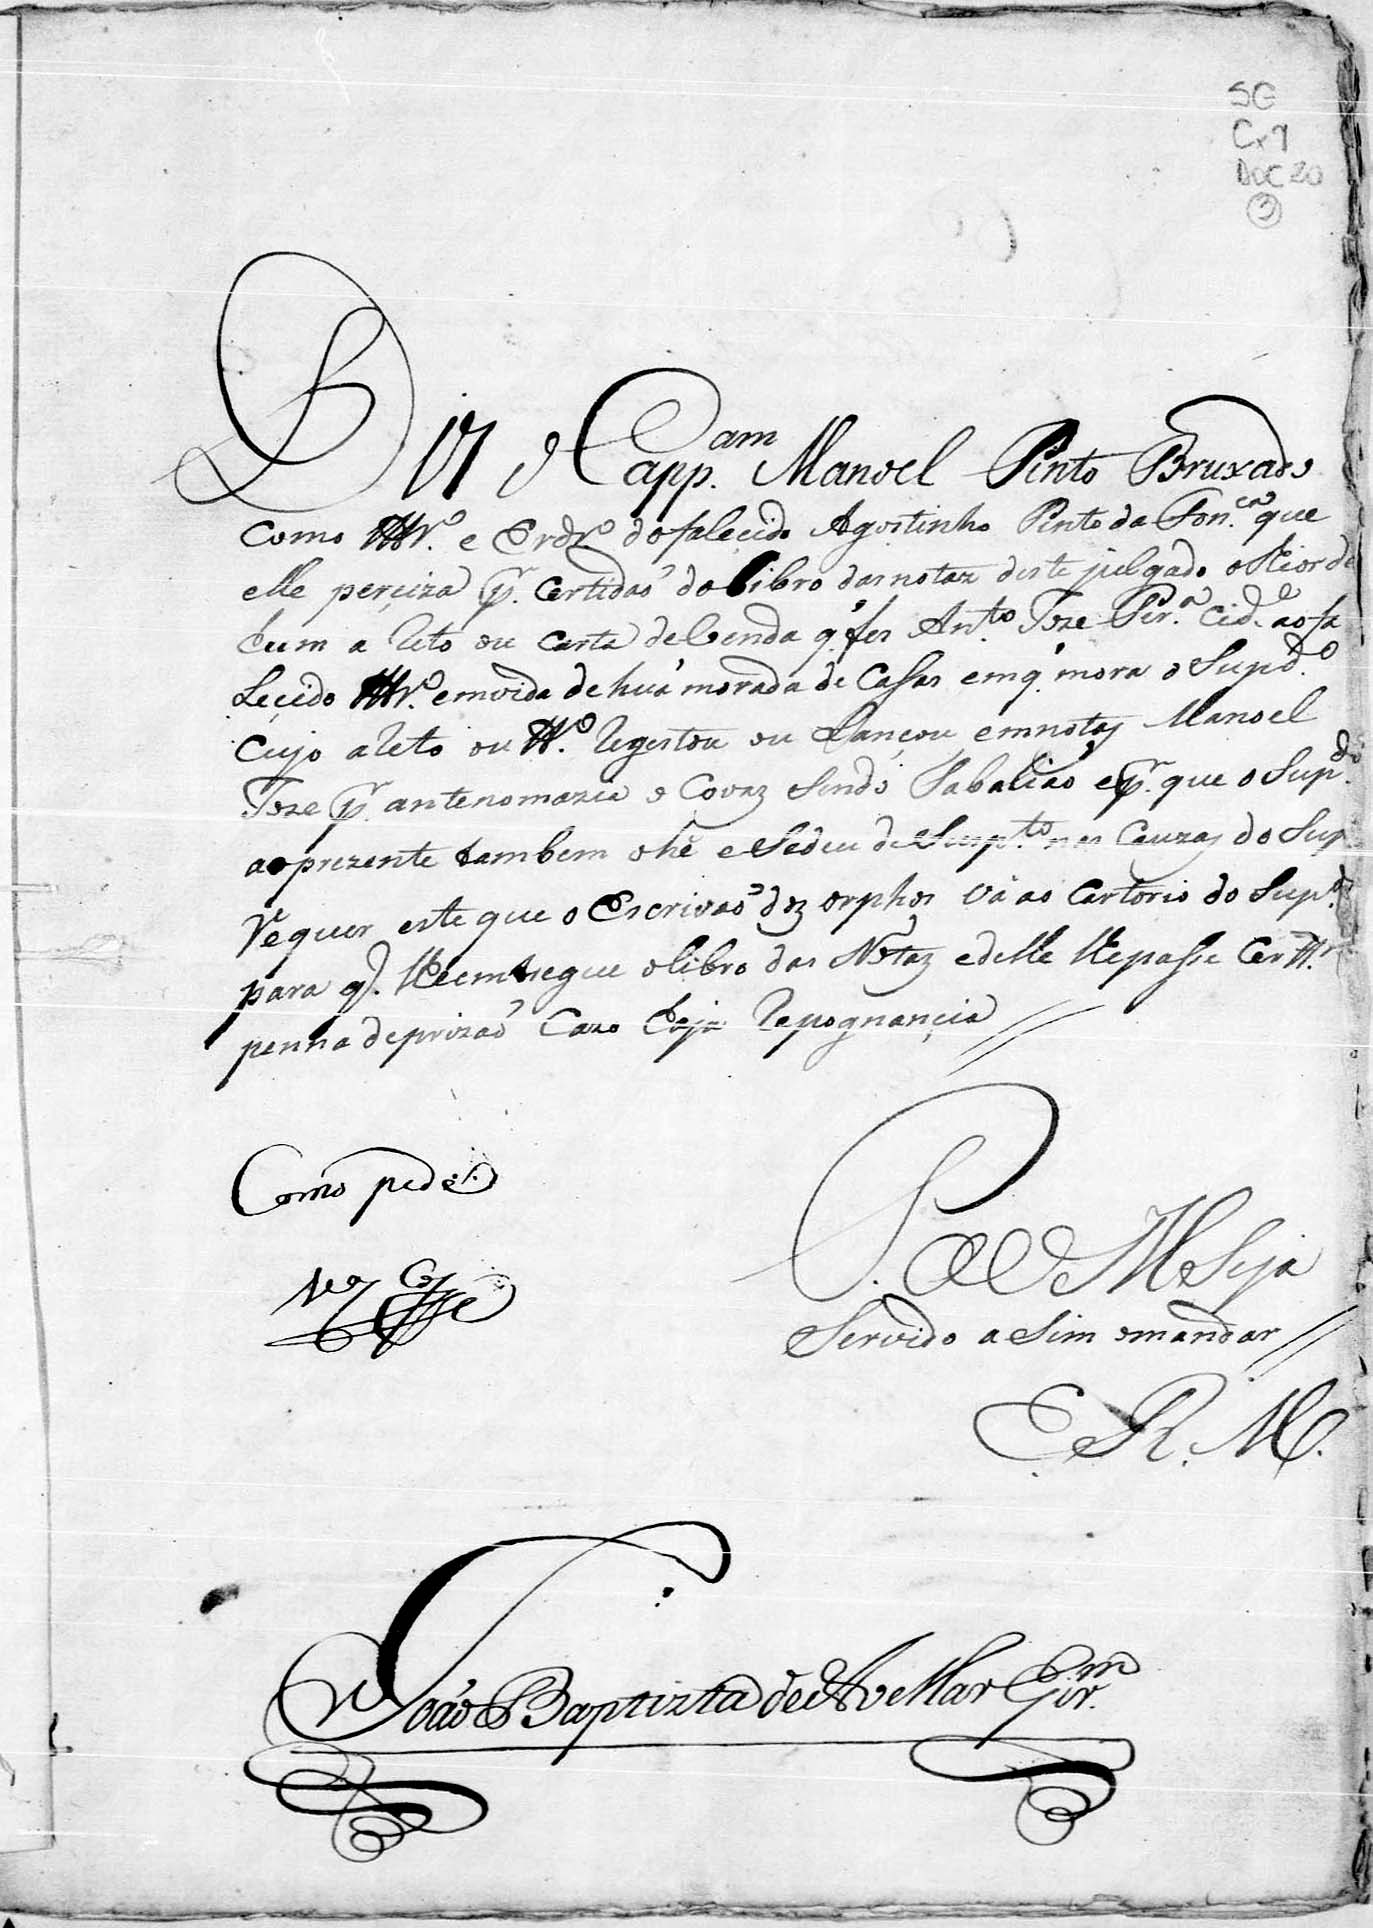 SG
Cx 7
Doc 20
3
Diz o Capp.am Manoel Pinto Bruxado
Como Ttr.º e Erdr.º do falecido Agostinho Pinto da Fon.ca que
elle perçiza p.r Certidaõ do Libro das notaz deste julgado o Thior de
hum a Reto ou Carta de Venda q. fes An.to Joze Per.a Cid.e ao fa
Leçido Ttr.º em vida de huá morada de Casas em q. mora o Supd.º
Cujo a Reto ou Tt.º Regestou ou Lançou em notas Manoel
Joze p.r antenomazia o Covaz Sendo Tabaliaõ e p.r que o Supd.º
ao prezente tambem o hê e Sedeu de Susp.to nas Cauzas do Sup
Requer este que o Escrivaõ doz orphos vá ao Cartorio do Sup.do
para q. lhe emtregue o libro das Notaz e delle lhe passe Cer
penna de prizaõ Cazo haja Repognançia //
Como pede
P. a V M Seja
Servido a Sim o mandar //
E. R. M.
Joaõ Baptizta de Avellar